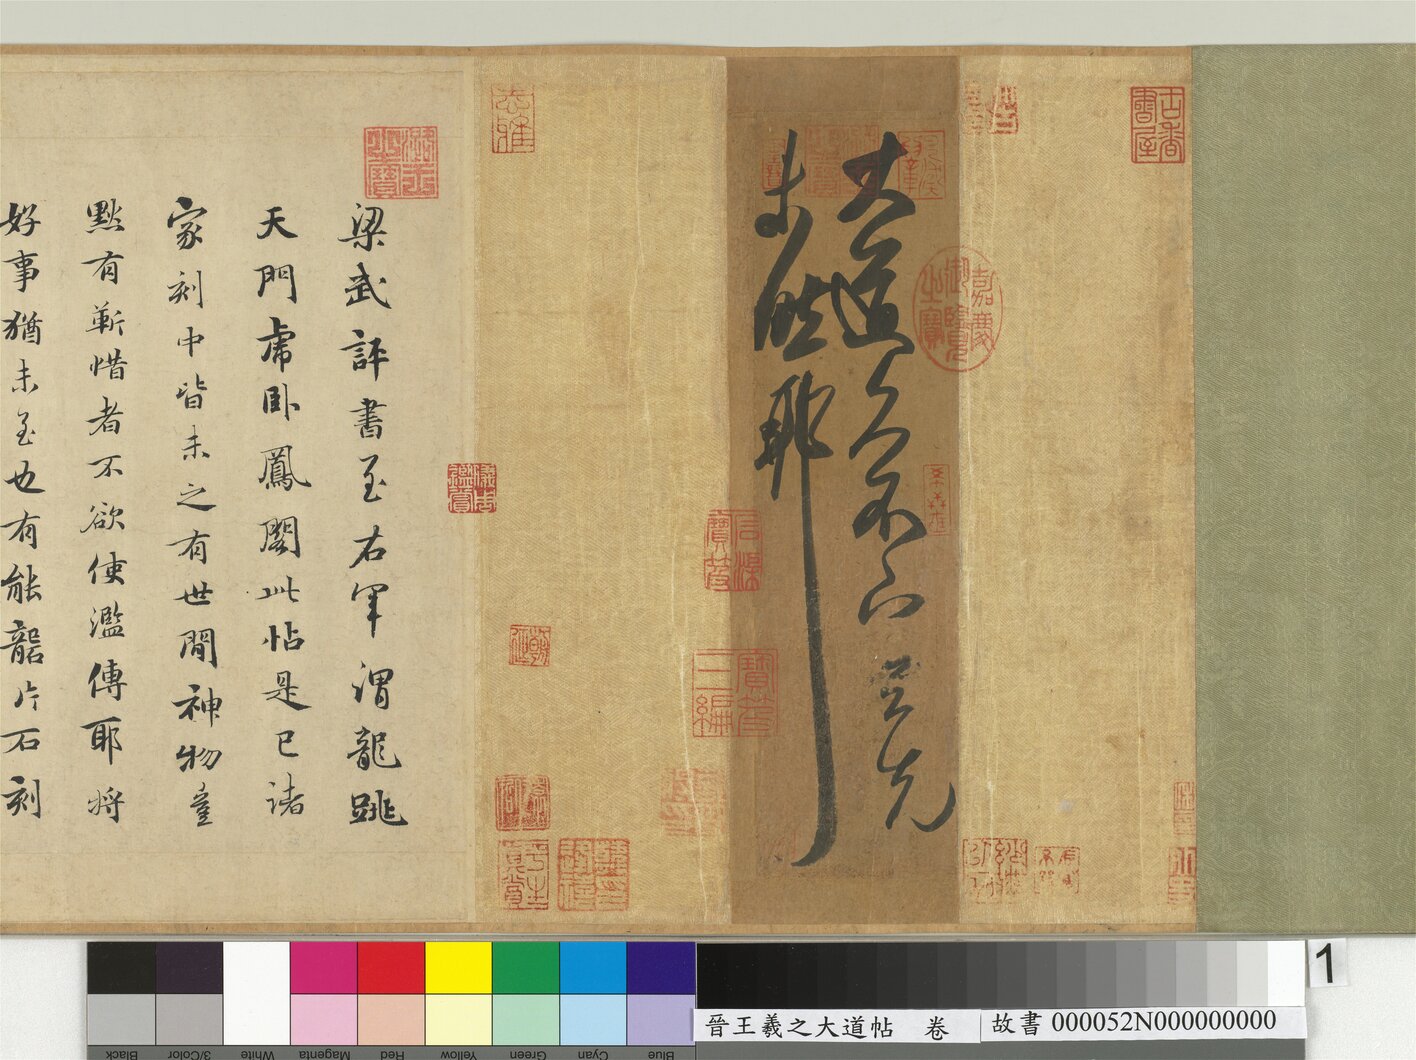 大道久不下與先
未然耶
梁武評書至右軍謂龍跳
天門虎臥鳳閣此帖是已諸
家刻中皆未之有世間神物豈
默有靳惜者不欲使濫傳耶將
好事猶未至也有能礱片石刻
古香書屋
嘉慶御覽之寶
寶笈三編
晉王羲之大道帖 卷
故書 000052N000000000
1
Black
3/Color
White
Magenta
Red
Yellow
Green
Cyan
Blue